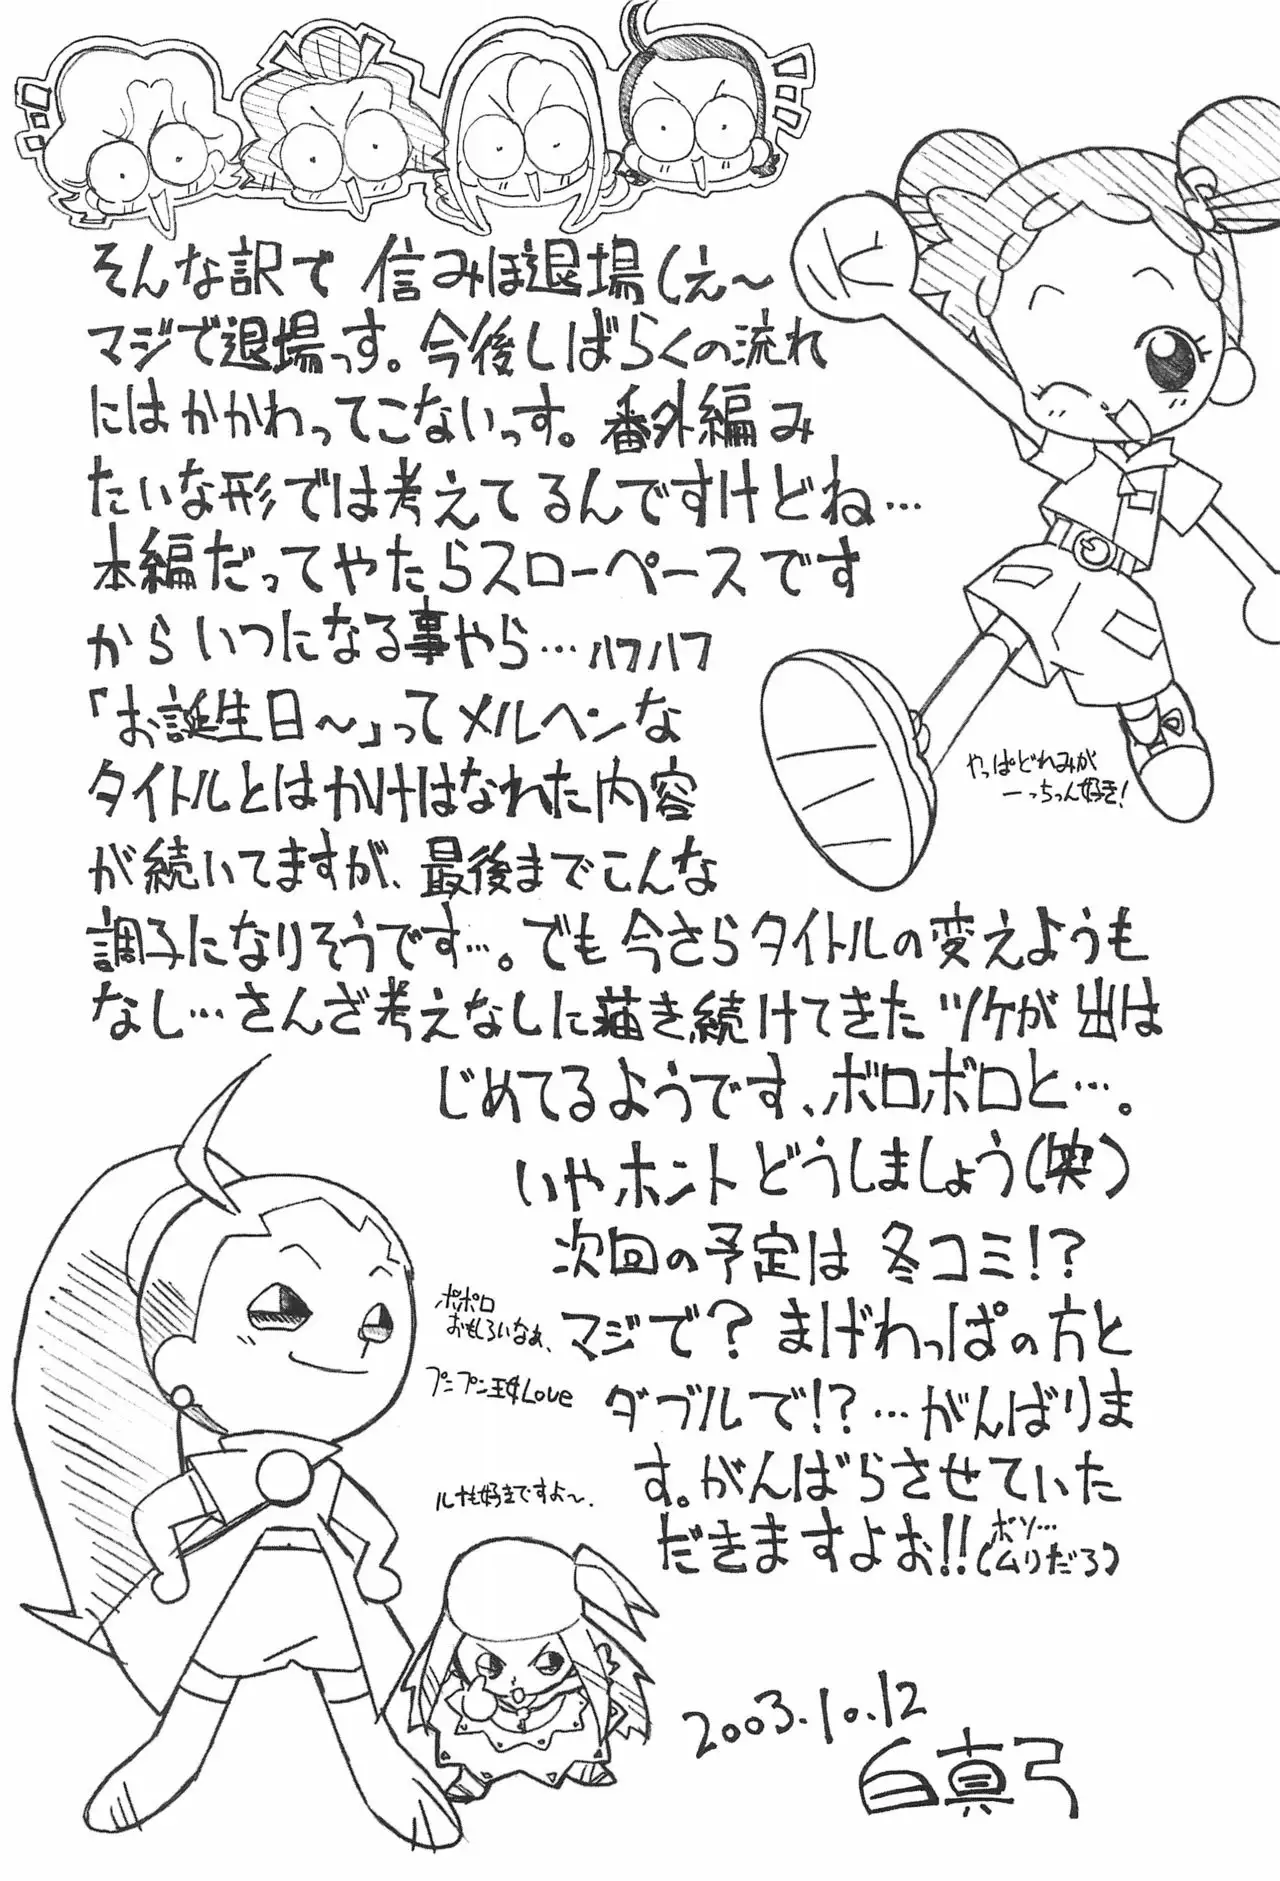 そんな訳で 信みほ退場(え〜
マジで退場っす。今後しばらくの流れ
にはかかわってこないっす。番外編み
たいな形では考えてるんですけどね…
本編だってやたらスローペースです
からいつになる事やら…ハフハフ
「お誕生日〜」ってメルヘンな
タイトルとはかけはなれた内容
が続いてますが、最後までこんな
調子になりそうです…。でも今さらタイトルの変えようも
なし…さんざ考えなしに描き続けてきたツケが出は
じめてるようです、ボロボロと…。
いやホントどうしましょう(笑)
次回の予定は 冬コミ!?
マジで?まげわっぱの方と
ダブルで!?…がんばりま
す。がんばらさせていた
だきますよぉ!!(ボソ…ムリだろ)
やっぱどれみが
一っちゃん好き!
ポポロ
おもしろいなぁ、
プニプン王女Love
ルナも好きですよ〜.
2003.10.12
白真弓